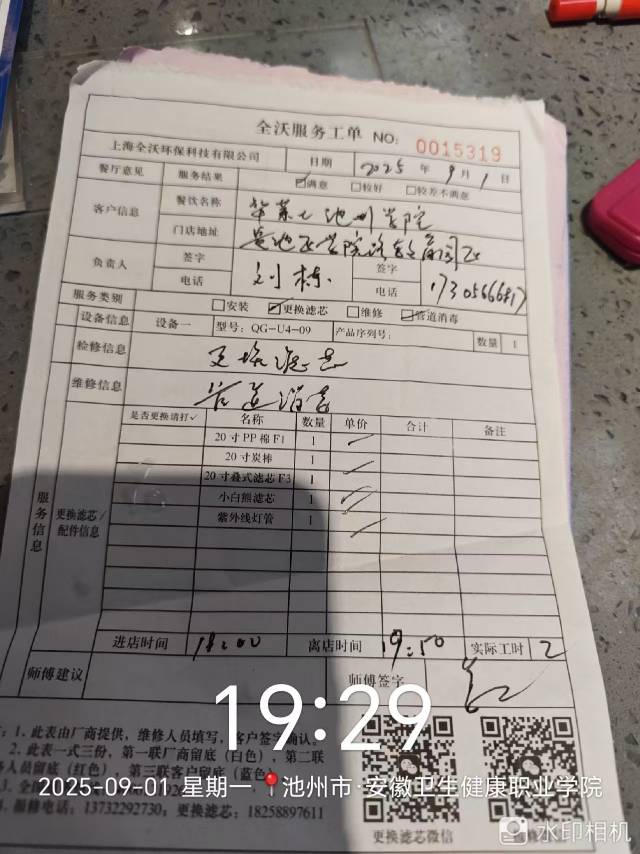 全沃服务工单 NO: 0015319
上海全沃环保科技有限公司 日期 2025 年 9 月 1 日
餐厅意见 服务结果 ☑满意 □较好 □较差不满意
客户信息 餐饮名称 池州学院
门店地址
负责人 签字 刘栋 签字
电话 电话 17305666817
服务类别 □安装 ☑更换滤芯 □维修 ☑管道消毒
设备信息 设备一 型号: QG-U4-09 产品序列号: 数量 1
检修信息 更换滤芯
维修信息 管道消毒
是否更换请打✓ 名称 数量 单价 合计 备注
服务信息 更换滤芯/配件信息
20寸PP棉F1 1
20寸炭棒 1
20寸叠式滤芯F3 1
小白熊滤芯 1
紫外线灯管 1
进店时间 18:00 离店时间 19:50 实际工时 2
师傅建议 师傅签字
19:29
1、此表由厂商提供，维修人员填写，客户签字确认。
2、此表一式三份，第一联厂商留底（白色），第二联
务人员留底（红色），第三联客户留底（蓝色）
2025-09-01 星期一 池州市·安徽卫生健康职业学院
报修电话: 13732292730; 更换滤芯: 18258897611
更换滤芯微信
水印相机